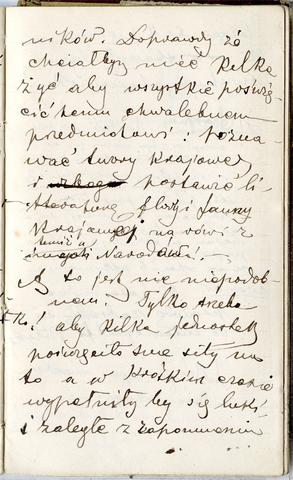 ników. Doprawdy że
chciałbym mieć kilka
żyć aby wszystkie poświę-
cić temu chwalebnemu
przedmiotowi: Pozna-
wać twory krajowe,
i postawić li-
teraturę flory i fauny
Krajowej na równi z
Narodami!
A to jest nie niepodob-
nem! Tylko trzeba
aby kilka jednostek
poświęciło swe siły na
to a w krótkim czasie
wypełniły by się luki
i zaległe z zapomnienia